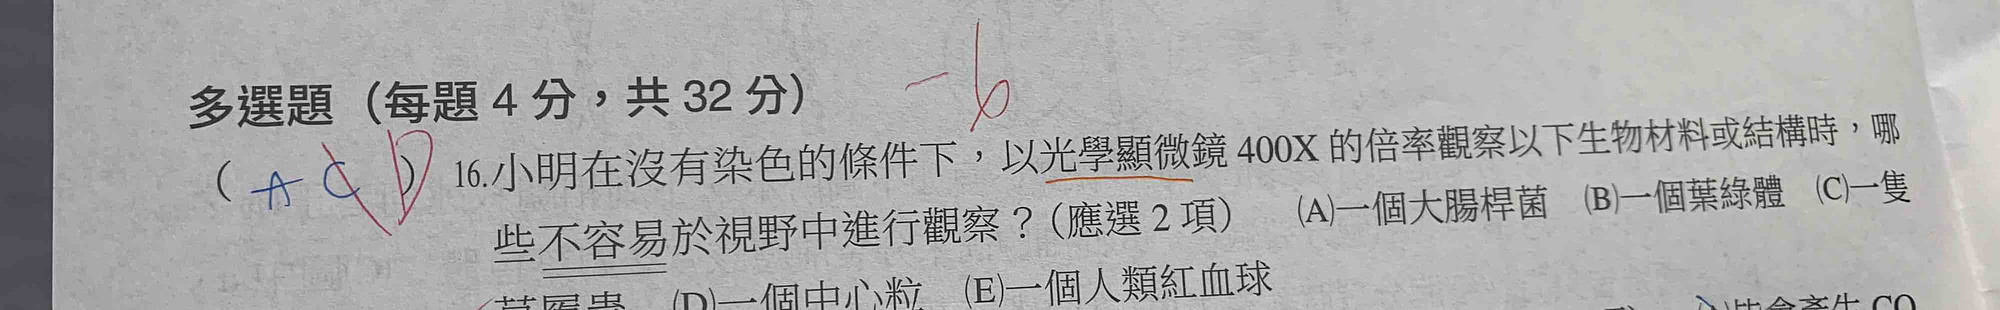 多選題（每題 4 分，共 32 分） -6
（ A C D ）16.小明在沒有染色的條件下，以光學顯微鏡 400X 的倍率觀察以下生物材料或結構時，哪
些不容易於視野中進行觀察？（應選 2 項） (A)一個大腸桿菌 (B)一個葉綠體 (C)一隻
草履蟲 (D)一個中心粒 (E)一個人類紅血球
皆會產生 CO